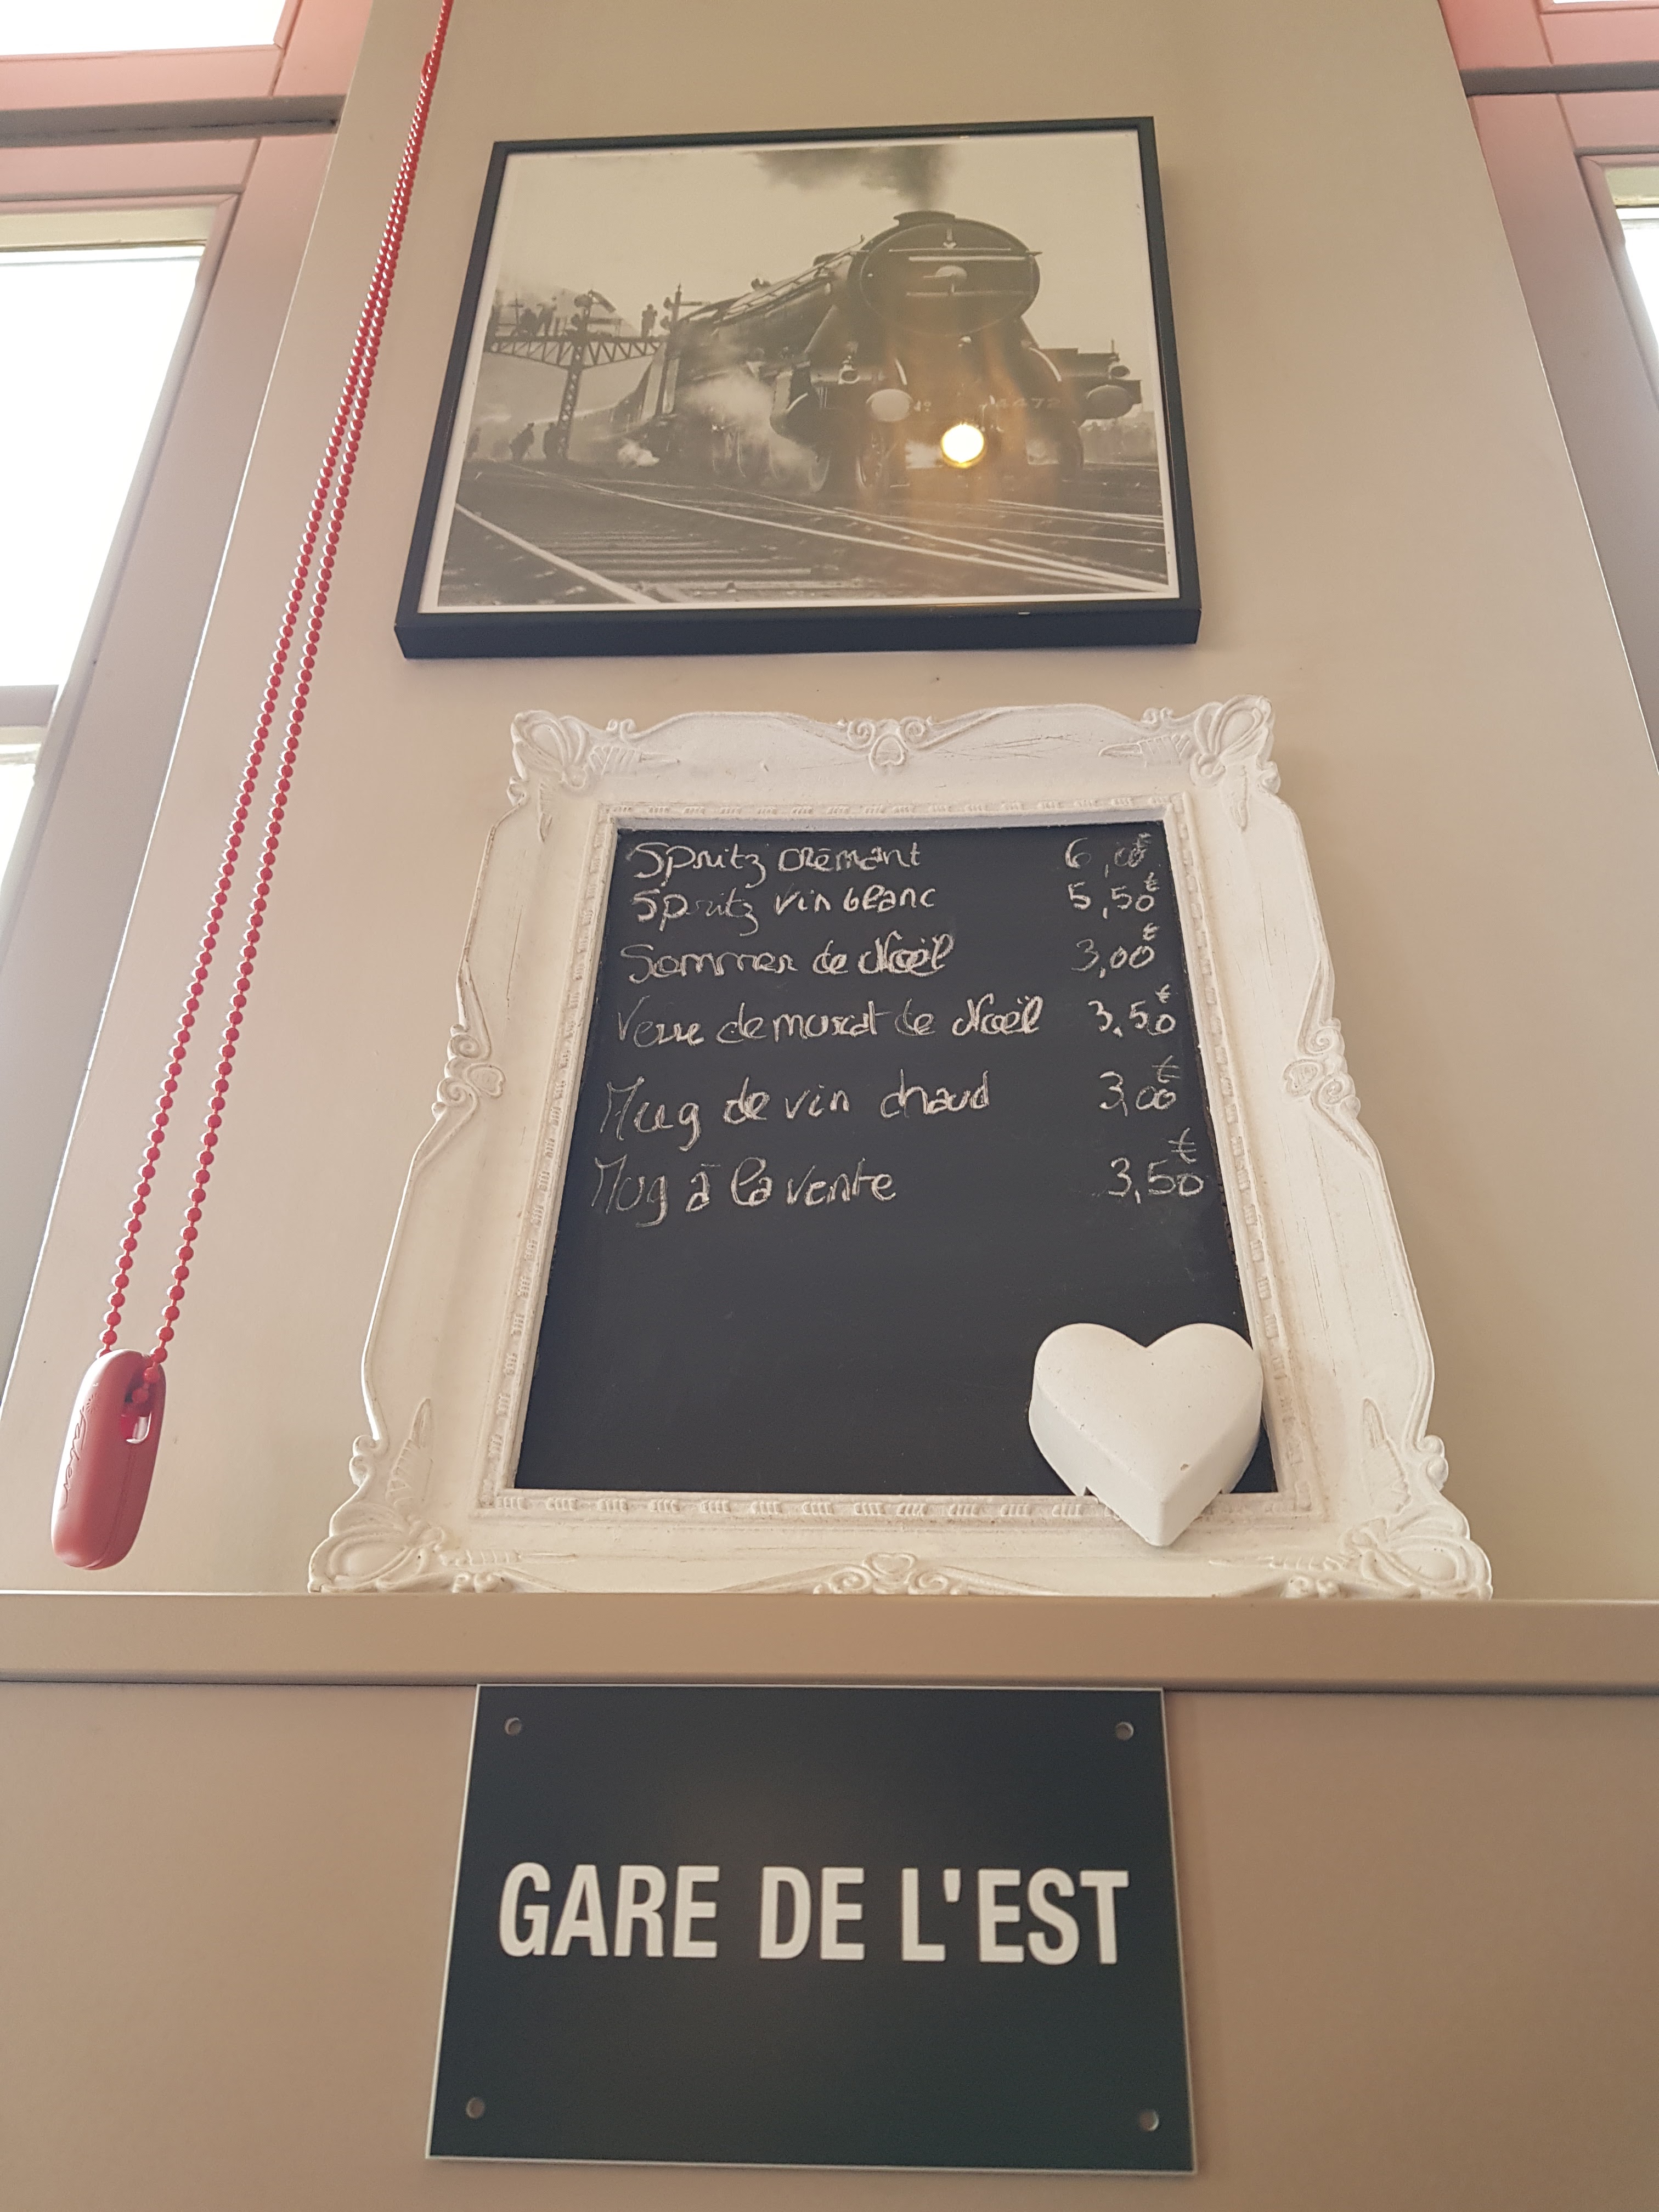 No 4472
Spritz crémant 6,00€
Spritz vin blanc 5,50€
Sommer de Noël 3,00€
Verre de muscat de Noël 3,50€
Mug de vin chaud 3,00€
Mug à la vente 3,50€
faber
GARE DE L'EST